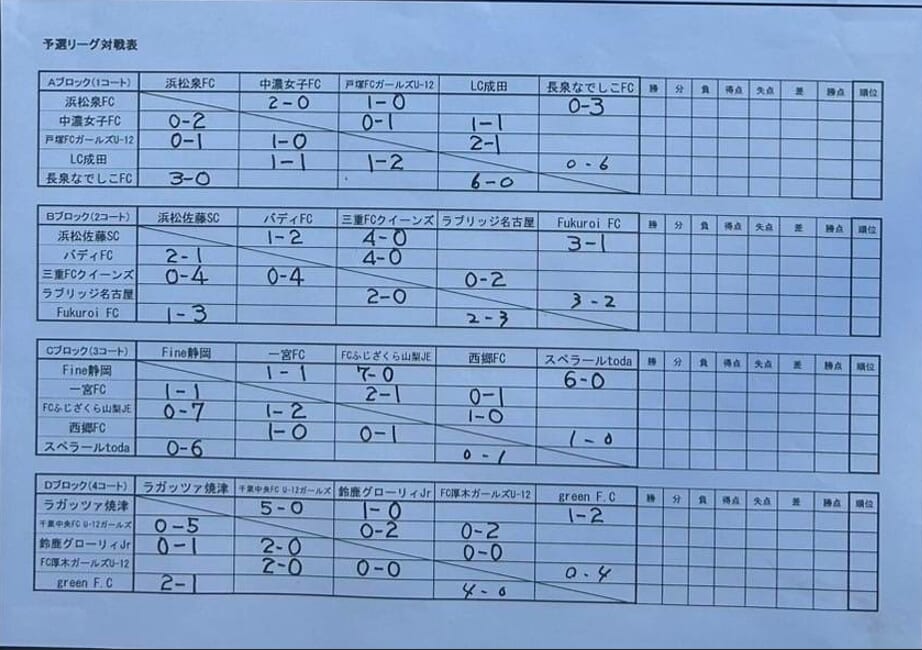 予選リーグ対戦表
Aブロック(1コート) 浜松泉FC 中濃女子FC 戸塚FCガールズU-12 LC成田 長泉なでしこFC 勝 分 負 得点 失点 差 勝点 順位
浜松泉FC 2-0 1-0 0-3
中濃女子FC 0-2 0-1 1-1
戸塚FCガールズU-12 0-1 1-0 2-1
LC成田 1-1 1-2 0-6
長泉なでしこFC 3-0 6-0
Bブロック(2コート) 浜松佐藤SC バディFC 三重FCクイーンズ ラブリッジ名古屋 Fukuroi FC 勝 分 負 得点 失点 差 勝点 順位
浜松佐藤SC 1-2 4-0 3-1
バディFC 2-1 4-0
三重FCクイーンズ 0-4 0-4 0-2
ラブリッジ名古屋 2-0 3-2
Fukuroi FC 1-3 2-3
Cブロック(3コート) Fine静岡 一宮FC FCふじざくら山梨JE 西郷FC スペラールtoda 勝 分 負 得点 失点 差 勝点 順位
Fine静岡 1-1 7-0 6-0
一宮FC 1-1 2-1 0-1
FCふじざくら山梨JE 0-7 1-2 1-0
西郷FC 1-0 0-1 1-0
スペラールtoda 0-6 0-1
Dブロック(4コート) ラガッツァ焼津 千葉中央FC U-12ガールズ 鈴鹿グローリィJr FC厚木ガールズU-12 green F.C 勝 分 負 得点 失点 差 勝点 順位
ラガッツァ焼津 5-0 1-0 1-2
千葉中央FC U-12ガールズ 0-5 0-2 0-2
鈴鹿グローリィJr 0-1 2-0 0-0
FC厚木ガールズU-12 2-0 0-0 0-4
green F.C 2-1 4-0